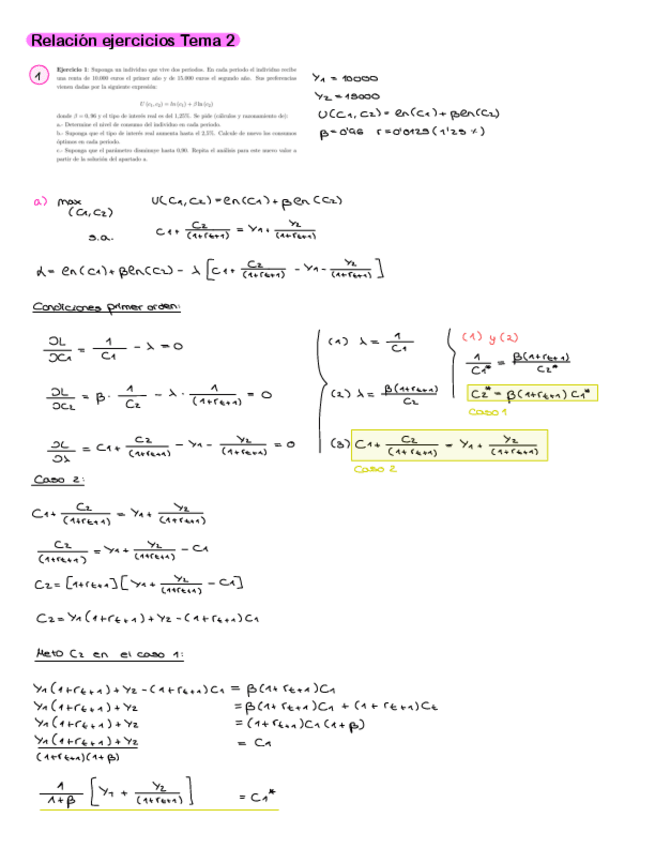 Relación ejercicios Tema 2
1
Ejercicio 1: Suponga un individuo que vive dos periodos. En cada periodo el individuo recibe
una renta de 10.000 euros el primer año y de 15.000 euros el segundo año. Sus preferencias
vienen dadas por la siguiente expresión:
U(c₁, c₂) = ln(c₁) + β ln(c₂)
donde β = 0,96 y el tipo de interés real es del 1,25%. Se pide (cálculos y razonamiento de):
a.- Determine el nivel de consumo del individuo en cada periodo.
b.- Suponga que el tipo de interés real aumenta hasta el 2,5%. Calcule de nuevo los consumos
óptimos en cada periodo.
c.- Suponga que el parámetro disminuye hasta 0,90. Repita el análisis para este nuevo valor a
partir de la solución del apartado a.
Y1 = 10000
Y2 = 15000
U(C1, C2) = ln(C1) + βln(C2)
β = 0'96 r = 0'0125 (1'25 %)
a) max U(C1, C2) = ln(C1) + β ln(C2)
(C1, C2)
s.a. C1 + C2/(1+rt+1) = Y1 + Y2/(1+rt+1)
L = ln(C1) + βln(C2) - λ [C1 + C2/(1+rt+1) - Y1 - Y2/(1+rt+1)]
Condiciones primer orden:
∂L/∂C1 = 1/C1 - λ = 0
∂L/∂C2 = β · 1/C2 - λ · 1/(1+rt+1) = 0
∂L/∂λ = C1 + C2/(1+rt+1) - Y1 - Y2/(1+rt+1) = 0
(1) λ = 1/C1
(2) λ = β(1+rt+1)/C2
(3) C1 + C2/(1+rt+1) = Y1 + Y2/(1+rt+1)
Caso 2
(1) y (2)
1/C1* = β(1+rt+1)/C2*
C2* = β(1+rt+1) C1*
Caso 1
Caso 2:
C1 + C2/(1+rt+1) = Y1 + Y2/(1+rt+1)
C2/(1+rt+1) = Y1 + Y2/(1+rt+1) - C1
C2 = [1+rt+1] [Y1 + Y2/(1+rt+1) - C1]
C2 = Y1(1+rt+1) + Y2 - (1+rt+1)C1
Meto C2 en el caso 1:
Y1(1+rt+1) + Y2 - (1+rt+1)C1 = β(1+rt+1)C1
Y1(1+rt+1) + Y2 = β(1+rt+1)C1 + (1+rt+1)Ct
Y1(1+rt+1) + Y2 = (1+rt+1)C1(1+β)
Y1(1+rt+1) + Y2/(1+rt+1)(1+β) = C1
1/1+β [Y1 + Y2/(1+rt+1)] = C1*